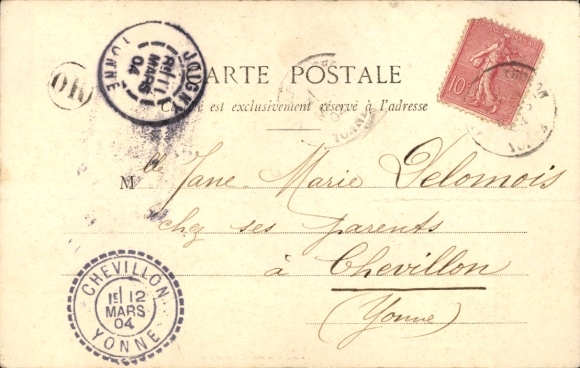 JOIGNY
11
MARS
04
YONNE
OR
CARTE POSTALE
Ce côté est exclusivement réservé à l'adresse
10
YONNE
YONNE
Mlle Jane-Marie Delomois
chez ses parents
à Chevillon
(Yonne)
CHEVILLON
1E 12
MARS
04
YONNE